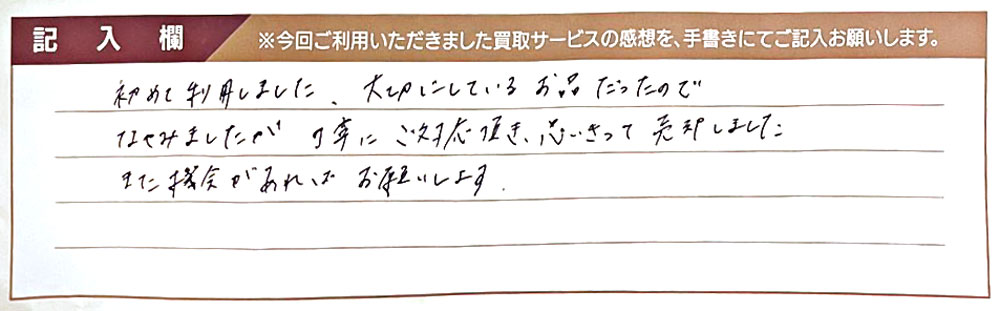 記入欄 ※今回ご利用いただきました買取サービスの感想を、手書きにてご記入お願いします。
初めて利用しました、大切にしているお品だったので
なやみましたが 丁寧にご対応頂き、思いきって売却しました
また機会があればお願いします.